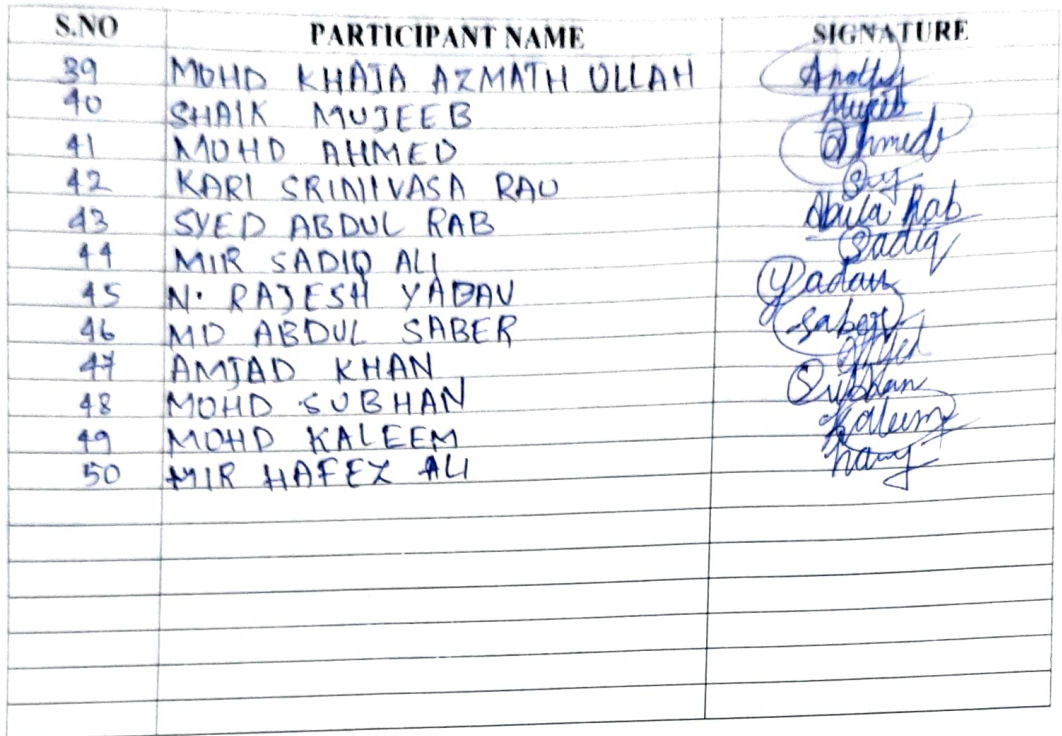 S.NO PARTICIPANT NAME SIGNATURE
39 MOHD KHAJA AZMATH ULLAH
40 SHAIK MUJEEB Mujeeb
41 MOHD AHMED Ahmed
42 KARI SRINIVASA RAO
43 SYED ABDUL RAB Abdul Rab
44 MIR SADIQ ALI Sadiq
45 N. RAJESH YADAV Yadav
46 MD ABDUL SABER Saber
47 AMJAD KHAN
48 MOHD SUBHAN Subhan
49 MOHD KALEEM Kaleem
50 MIR HAFEZ ALI